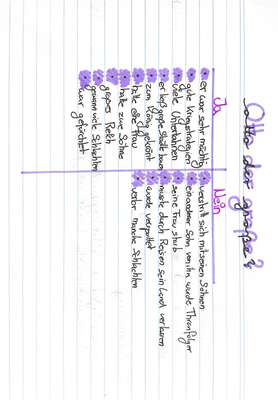 Otto der große?
Ja
er war sehr mächtig
gute Kriegsstrategien
viele
er ließ große Städte bauen
zum König gekrönt
hatte eine Frau
hatte zwei Söhne
großes Reich
gewann viele Schlachten
war gefürchtet
Nein
verstritt sich mit seinen Söhnen
ein anderer Sohn von ihm wurde Thronfolger
seine Frau starb
musste durch Reisen sein Land
wurde verspottet
verlor manche Schlachten